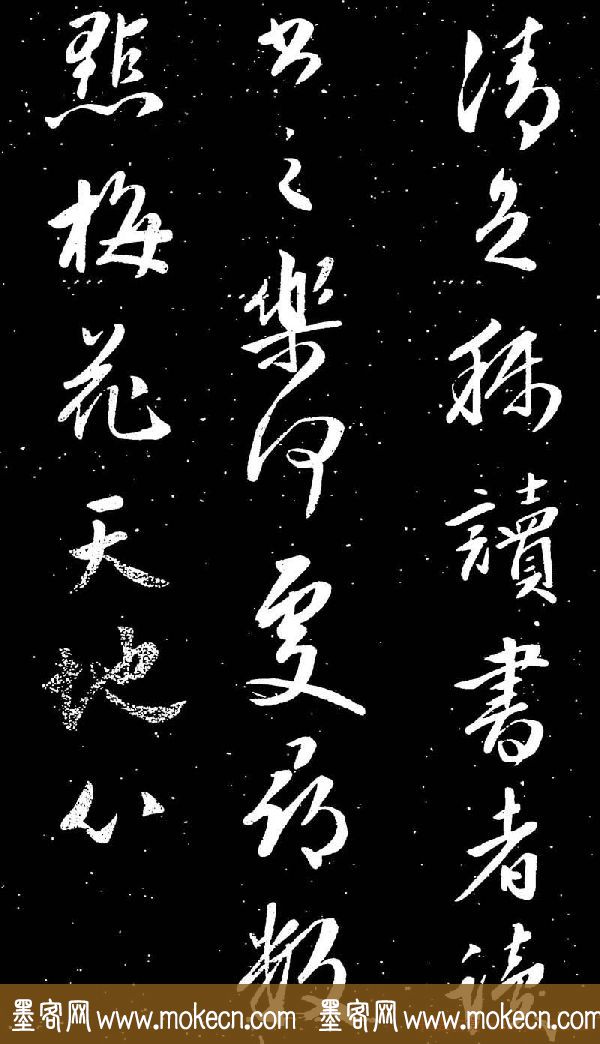 清足稱讀書者讀
書之樂何處尋數
點梅花天地心
墨客网 www.mokecn.com 墨客网 www.mokecn.com